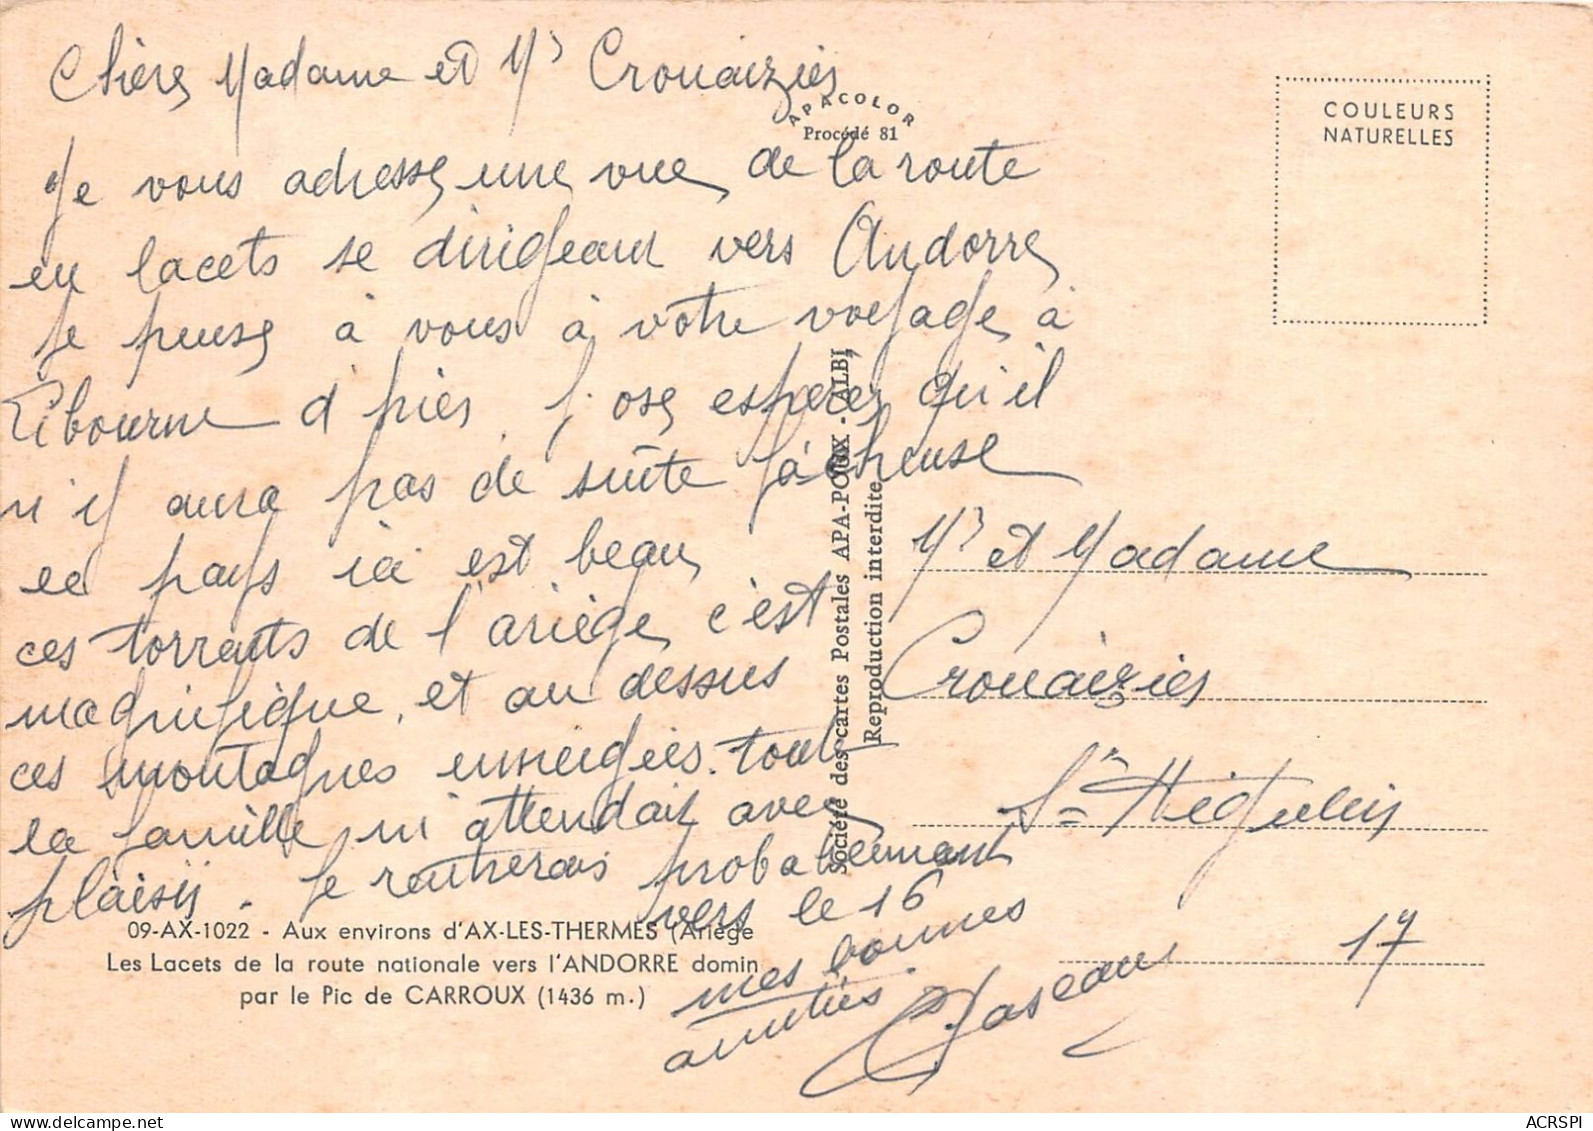 Chère Madame et Mr Crouaizier
APACOLOR
Procédé 81
COULEURS
NATURELLES
Je vous adresse une vue, de la route
en lacets se dirigeant vers Andorre
Je pense à vous à votre voyage, à
Libourne d'hier j'ose espérer qu'il
n'y aura pas de suite fâcheuse
ce pays ici est beau
ces torrents de l'ariège, c'est
magnifique, et au dessus
ces montagnes enneigées. toute
la famille m'attendait avec
plaisir. Je rentrerais probablement
vers le 16
mes bonnes
amitiés.
Société des cartes Postales APA-POUX - ALBI
Reproduction interdite
Mr et Madame
Crouaizier
17
09-AX-1022 - Aux environs d'AX-LES-THERMES (Ariège
Les Lacets de la route nationale vers l'ANDORRE domin
par le Pic de CARROUX (1436 m.)
ACRSPI